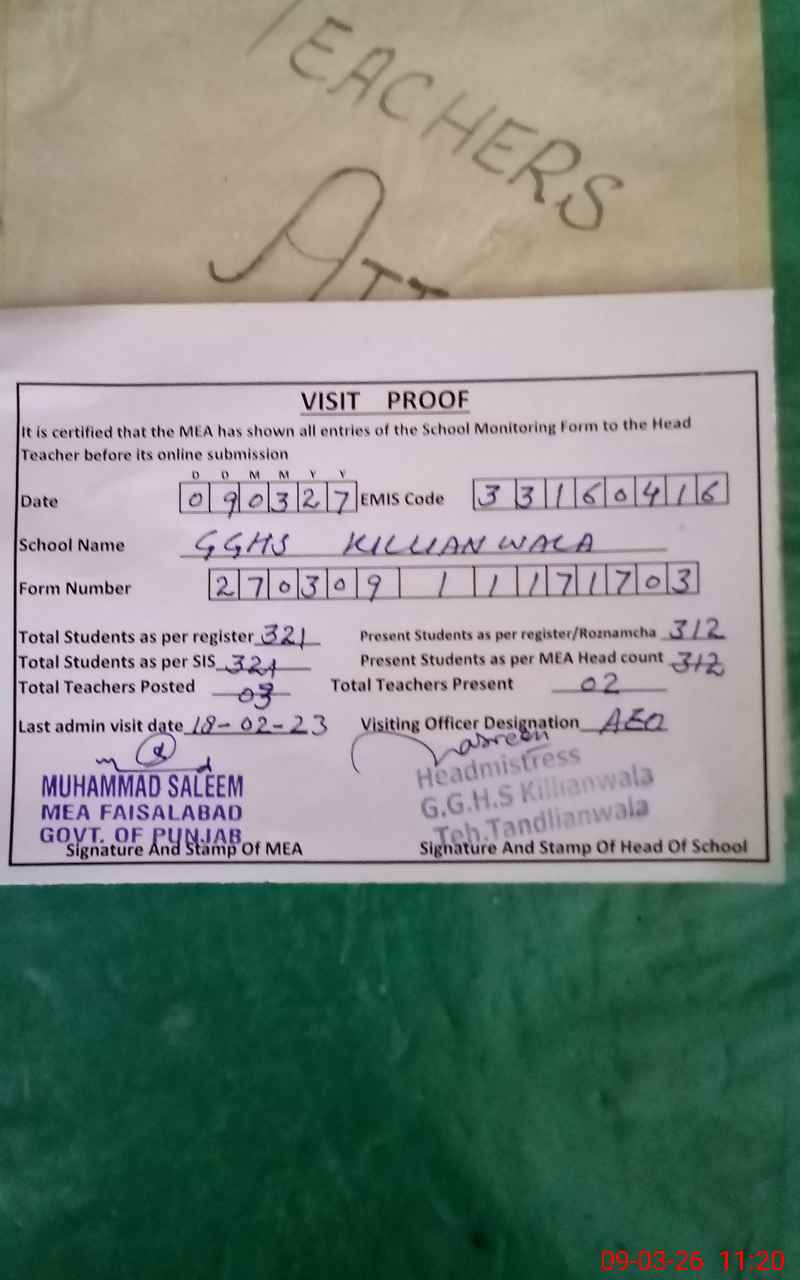 TEACHERS
ATT
VISIT PROOF
It is certified that the MEA has shown all entries of the School Monitoring Form to the Head
Teacher before its online submission
D D M M Y Y
Date 090327 EMIS Code 33160416
School Name GGHS KILLIANWALA
Form Number 27030911171703
Total Students as per register 321 Present Students as per register/Roznamcha 312
Total Students as per SIS 321 Present Students as per MEA Head count 312
Total Teachers Posted 03 Total Teachers Present 02
Last admin visit date 18-02-23 Visiting Officer Designation AEO
MUHAMMAD SALEEM
MEA FAISALABAD
GOVT. OF PUNJAB
Signature And Stamp Of MEA
Nasreen
Headmistress
G.G.H.S Killianwala
Teh.Tandlianwala
Signature And Stamp Of Head Of School
09-03-26 11:20